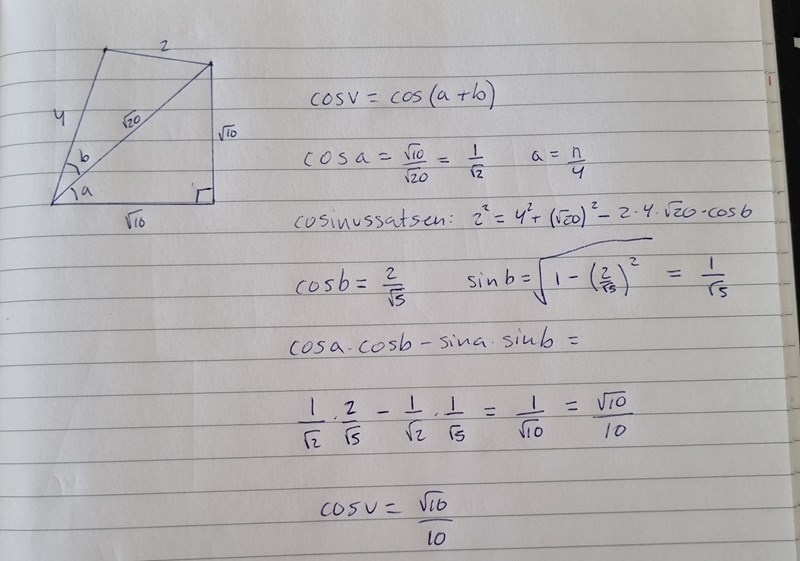 2
4
√20
√10
b
a
√10
cosv = cos(a+b)
cosa = √10/√20 = 1/√2 a = π/4
cosinussatsen: 2² = 4² + (√20)² - 2·4·√20·cosb
cosb = 2/√5 sinb = √(1 - (2/√5)²) = 1/√5
cosa·cosb - sina·sinb =
1/√2 · 2/√5 - 1/√2 · 1/√5 = 1/√10 = √10/10
cosv = √10/10